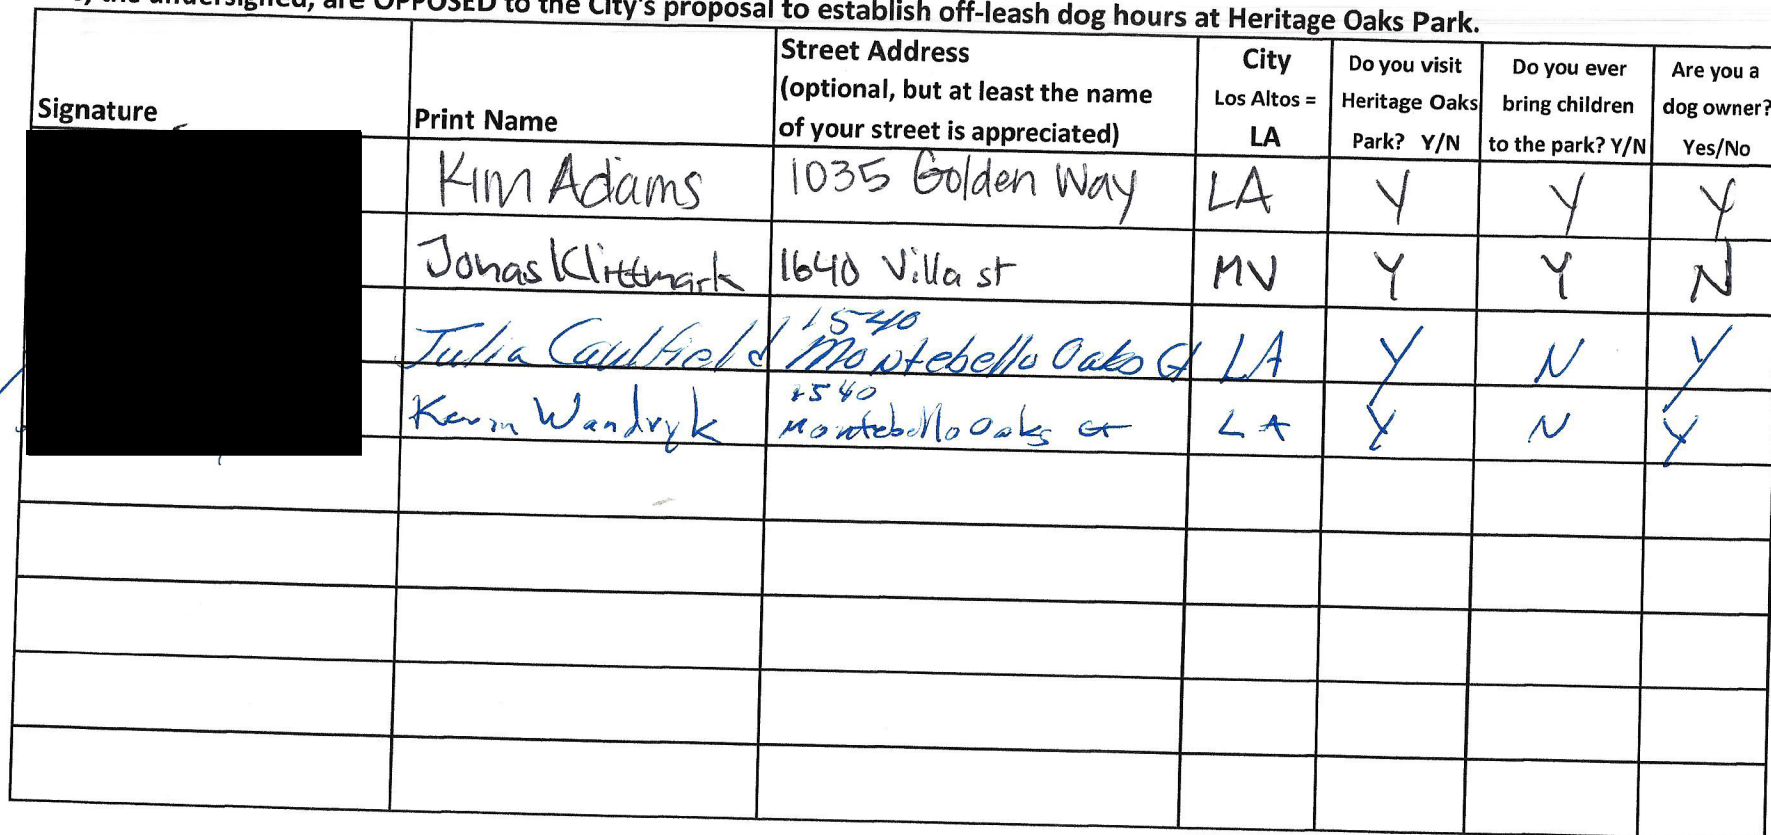 the undersigned, are OPPOSED to the City's proposal to establish off-leash dog hours at Heritage Oaks Park.
Signature
Print Name
Street Address
(optional, but at least the name
of your street is appreciated)
City
Los Altos =
LA
Do you visit
Heritage Oaks
Park? Y/N
Do you ever
bring children
to the park? Y/N
Are you a
dog owner?
Yes/No
Kim Adams 1035 Golden Way LA Y Y Y
Jonas Klittmark 1640 Villa st MV Y Y N
1540
Julia Caulfield Montebello Oaks Ct LA Y N Y
1540
Kevin Wandryk Montebello Oaks Ct LA Y N Y